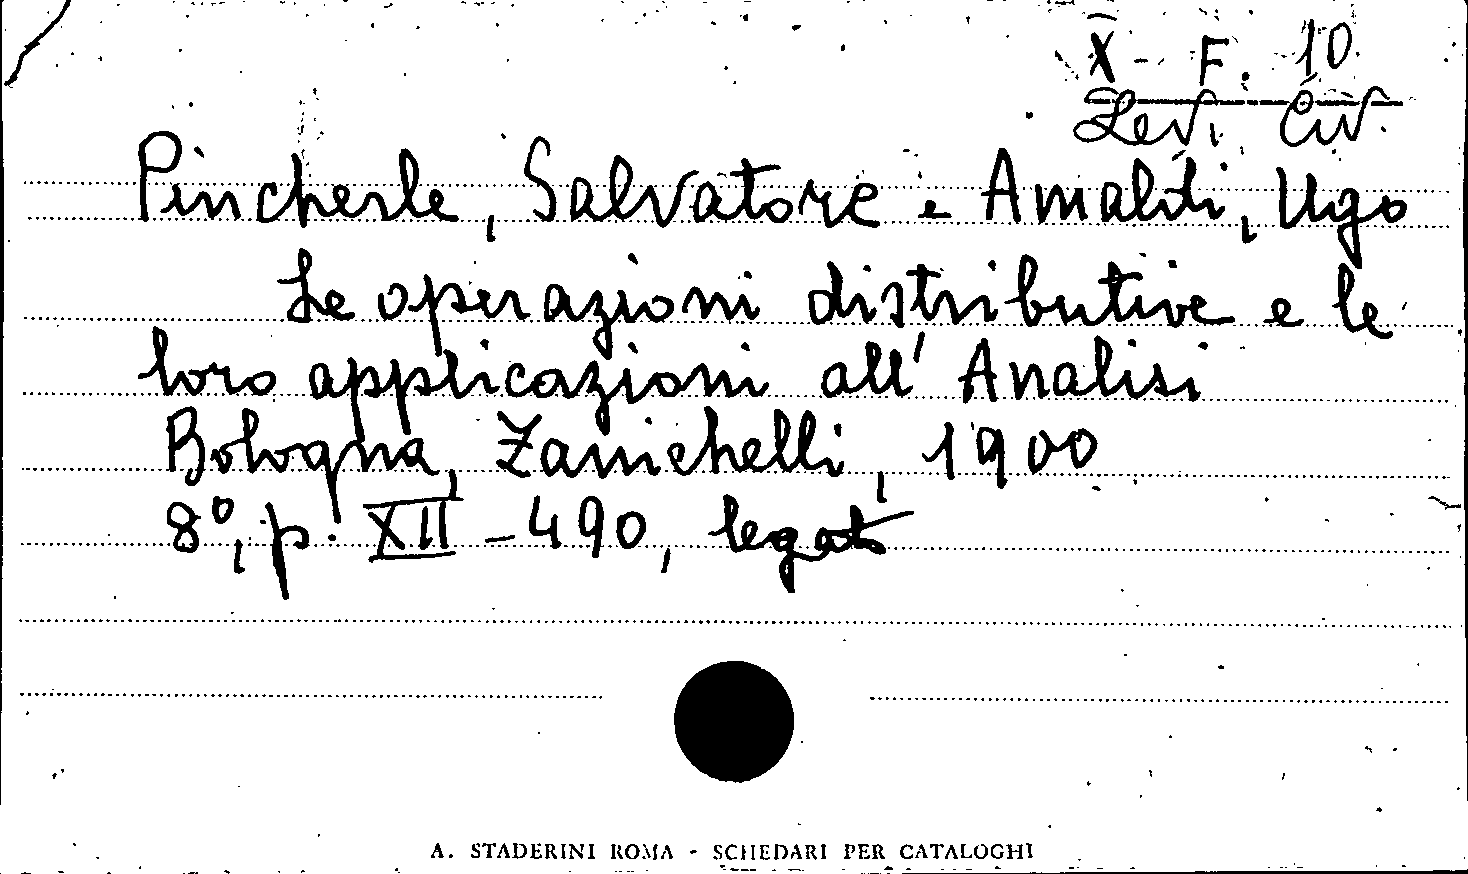 X - F. 10
Levi Civ.
Pincherle, Salvatore e Amaldi, Ugo
Le operazioni distributive e le
loro applicazioni all'Analisi
Bologna, Zanichelli, 1900
8°, p. XII - 490, legato
A. STADERINI ROMA - SCHEDARI PER CATALOGHI